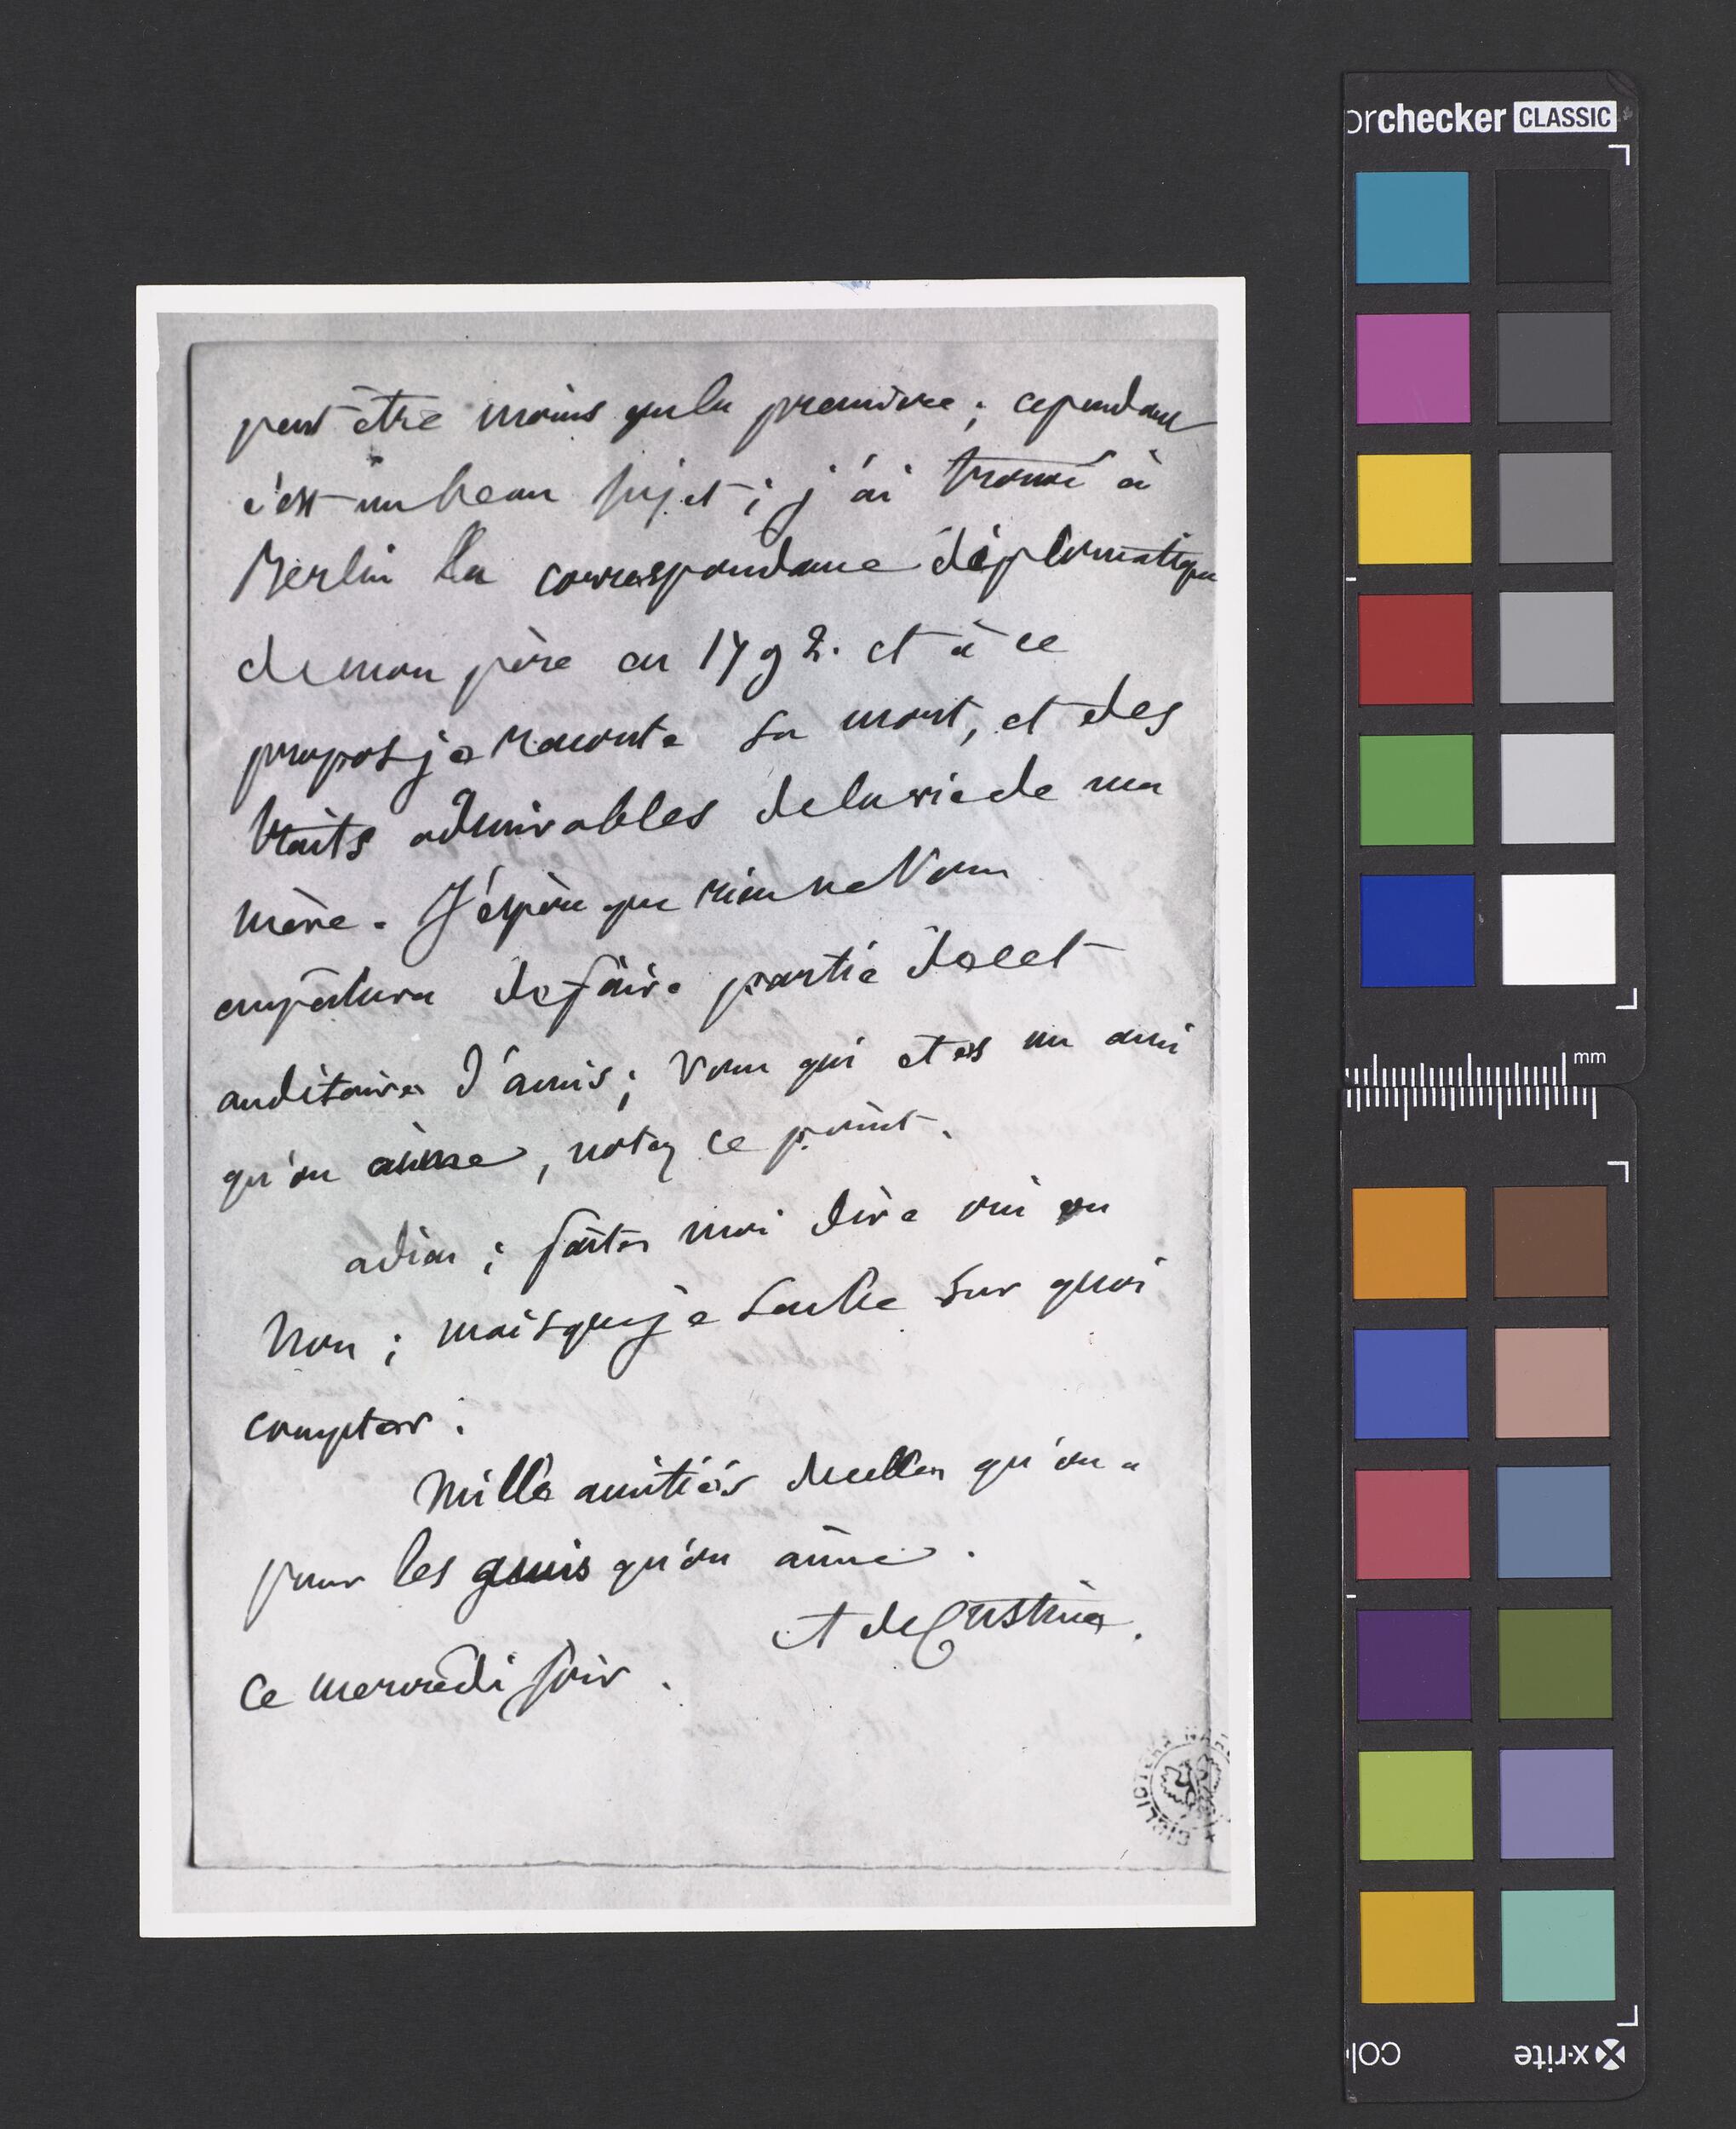 peut être moins que la première ; cependant
c'est un beau sujet ; j'ai trouvé à
Berlin la correspondance diplomatique
de mon père en 1792. et à ce
propos je raconte sa mort, et des
traits admirables de la vie de ma
mère. J'éspère que rien ne Vous
empêchera de faire partie de cet
auditoire d'amis ; Vous qui etes un ami
qu'on aime, notez ce point.
adieu ; faites moi dire oui ou
Non ; mais que je sache sur quoi
compter.
Mille amitiés de celles qu'on a
pour les amis qu'on aime.
A de Custine.
ce mercredi soir.
orchecker CLASSIC
mm
x-rite
col